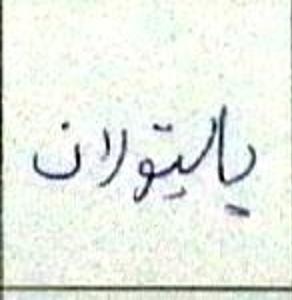 یالیتولان